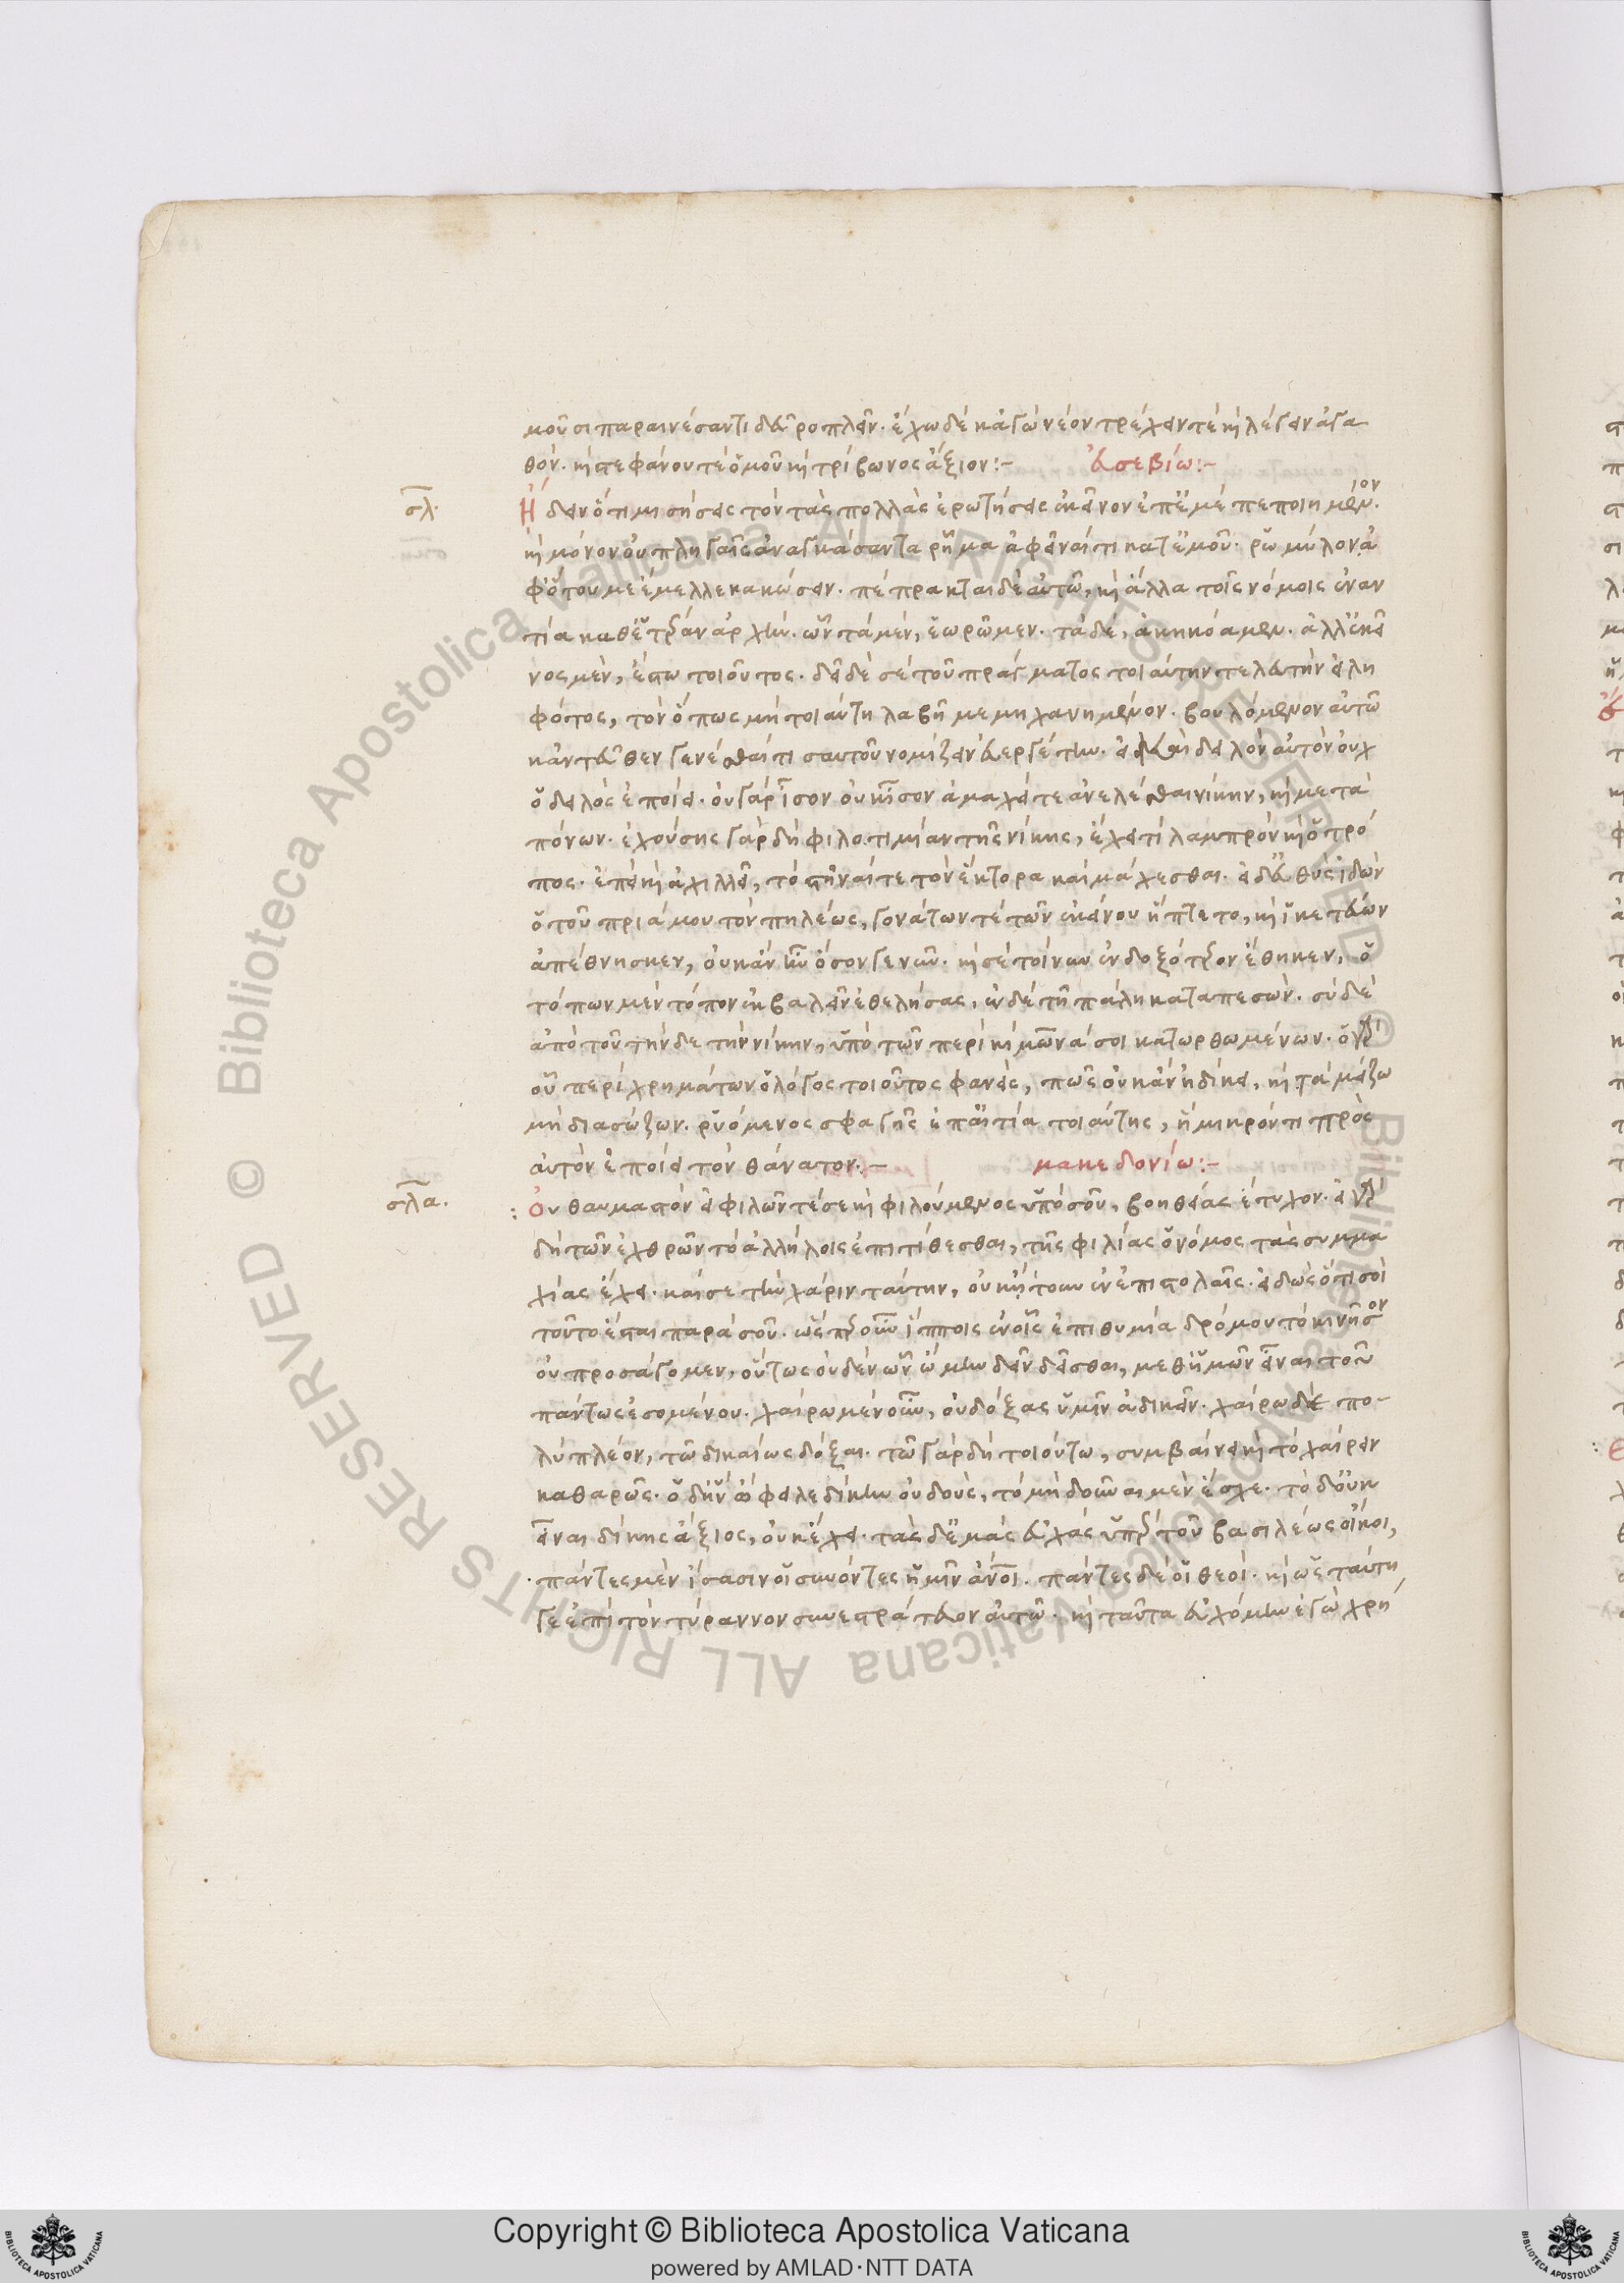 μοῦ σι παραινέσαντι δεῦρο πλεῖν. ἔχω δὲ κἀγὼ νέον τρέχειν τε καὶ λέγειν ἀγα
θόν. καὶ στεφάνου τε ὁμοῦ καὶ τρίβωνος ἄξιον:– εὐσεβίω:–
σλ. Ἤδειν ὅτι μισήσεις τὸν τὰς πολλὰς ἐρωτήσεις ἐκεῖνον ἐπ' ἐμὲ πεποιημένον.
καὶ μόνον οὐ πληγαῖς ἀναγκάσαντα ῥῆμα ἀφεῖναί τι κατ' ἐμοῦ. ἀ
φ' ὅτου με ἔμελλε κακώσειν. πέπρακται δὲ αὐτῶ, καὶ ἄλλα τοῖς νόμοις ἐναν
τία καθ' ἑτέραν ἀρχήν. ὧν τὰ μὲν, ἑωρῶμεν. τὰ δὲ, ἀκηκόαμεν. ἀλλ' ἐκεῖ
νος μὲν, ἔστω τοιοῦτος. δεῖ δὲ σὲ τοῦ πράγματος τοιαύτην τελευτὴν εἰλη
φότος, τὸν ὅπως μὴ τοιαύτη λαβῆ μεμηχανημένον. βουλόμενον αὐτῶ
κἀντεῦθεν γενέσθαί τι σαυτοῦ νομίζειν εὐεργέτην. δειλὸν αὐτὸν οὐχ
ὁ δειλὸς ἐποίει. οὐ γὰρ ἴσον οὐκ ἴσον ἀμαχεί τε ἀνελέσθαι νίκην, καὶ μετὰ
πόνων. ἐχούσης γὰρ δὴ φιλοτιμίαν τῆς νίκης, ἔχει τι λαμπρὸν καὶ ὁ τρό
πος. ἐπεὶ καὶ ἀχιλλεῖ, τὸ στῆναί τε τὸν ἕκτορα καὶ μάχεσθαι. εἰ δ' εὐθὺς ἰδὼν
ὁ τοῦ πριάμου τὸν πηλέως, γονάτων τε τῶν ἐκείνου ἥπτετο, καὶ ἱκετεύων
ἀπέθνησκεν, οὐκ ἂν ἦν ὅσον γε νῦν. καὶ σὲ τοίνυν ἐνδοξότερον ἔθηκεν, ὁ
τόπων μὲν τόπον ἐκβαλεῖν ἐθελήσας, ἐν δὲ τῆ πάλη καταπεσὼν. σὺ δὲ
ἀπὸ τοῦ τήνδε τὴν νίκην, ὑπὸ τῶν περὶ κἠμῶν ἅ σοι κατωρθωμένων. ὅπερ εἰ
οὖν περὶ χρημάτων ὁ λόγος τοιοῦτος φανεὶς, πῶς οὐκ ἂν ἠδίκει, καὶ τὰ μείζω
μὴ διασώζων. ῥυόμενος σφαγῆς ἐπ' αἰτία τοιαύτης, ἣ μικρόν τι πρὸς
αὐτὸν ἐποίει τὸν θάνατον:– μακεδονίω:–
σλα. Οὐ θαυμαστὸν εἰ φιλῶν τέ σε καὶ φιλούμενος ὑπὸ σοῦ, βοηθείας ἔτυχον. εἰ γὰρ
δὴ τῶν ἐχθρῶν τὸ ἀλλήλοις ἐπιτίθεσθαι, τῆς φιλίας ὁ νόμος τὰς συμμα
χίας ἔχει. καί σε τὴν χάριν ταύτην, οὐκ ἤτουν ἐν ἐπιστολαῖς. εἰδὼς ὅτι σοὶ
τοῦτο ἔσται παρὰ σοῦ. ὥσπερ οὖν ἵπποις ἐν οἷς ἐπιθυμία δρόμου τὸ κινῆσον
οὐ προσάγομεν, οὕτως οὐδὲν ὧν ᾤμην δεῖν δεῖσθαι, μεθ' ἡμῶν εἶναι τοῦ
πάντως ἐσομένου. χαίρω μὲν οὖν, οὐ δόξας ὑμῖν ἀδικεῖν. χαίρω δὲ πο-
λὺ πλέον, τῶ δικαίως δόξαι. τῶ γὰρ δὴ τοιούτω, συμβαίνει καὶ τὸ χαίρειν
καθαρῶς. ὁ δ' ἣν ὤφειλε δίκην οὐ δοὺς, τὸ μὴ δοῦναι μὲν ἔσχε. τὸ δ' οὐκ
εἶναι δίκης ἄξιος, οὐκ ἔχει. τὰς δ' ἐμὰς εὐχὰς ὑπὲρ τοῦ βασιλέως οἴκοι,
πάντες μὲν ἴσασιν οἱ συνόντες ἡμῖν ἄνθρωποι. πάντες δὲ οἱ θεοί. καὶ ὡς ταύτη
γε ἐπὶ τὸν τύραννον συνεστράτευον αὐτῶ. καὶ ταῦτα εὐχόμην ἐγὼ χρή
Copyright © Biblioteca Apostolica Vaticana
powered by AMLAD·NTT DATA